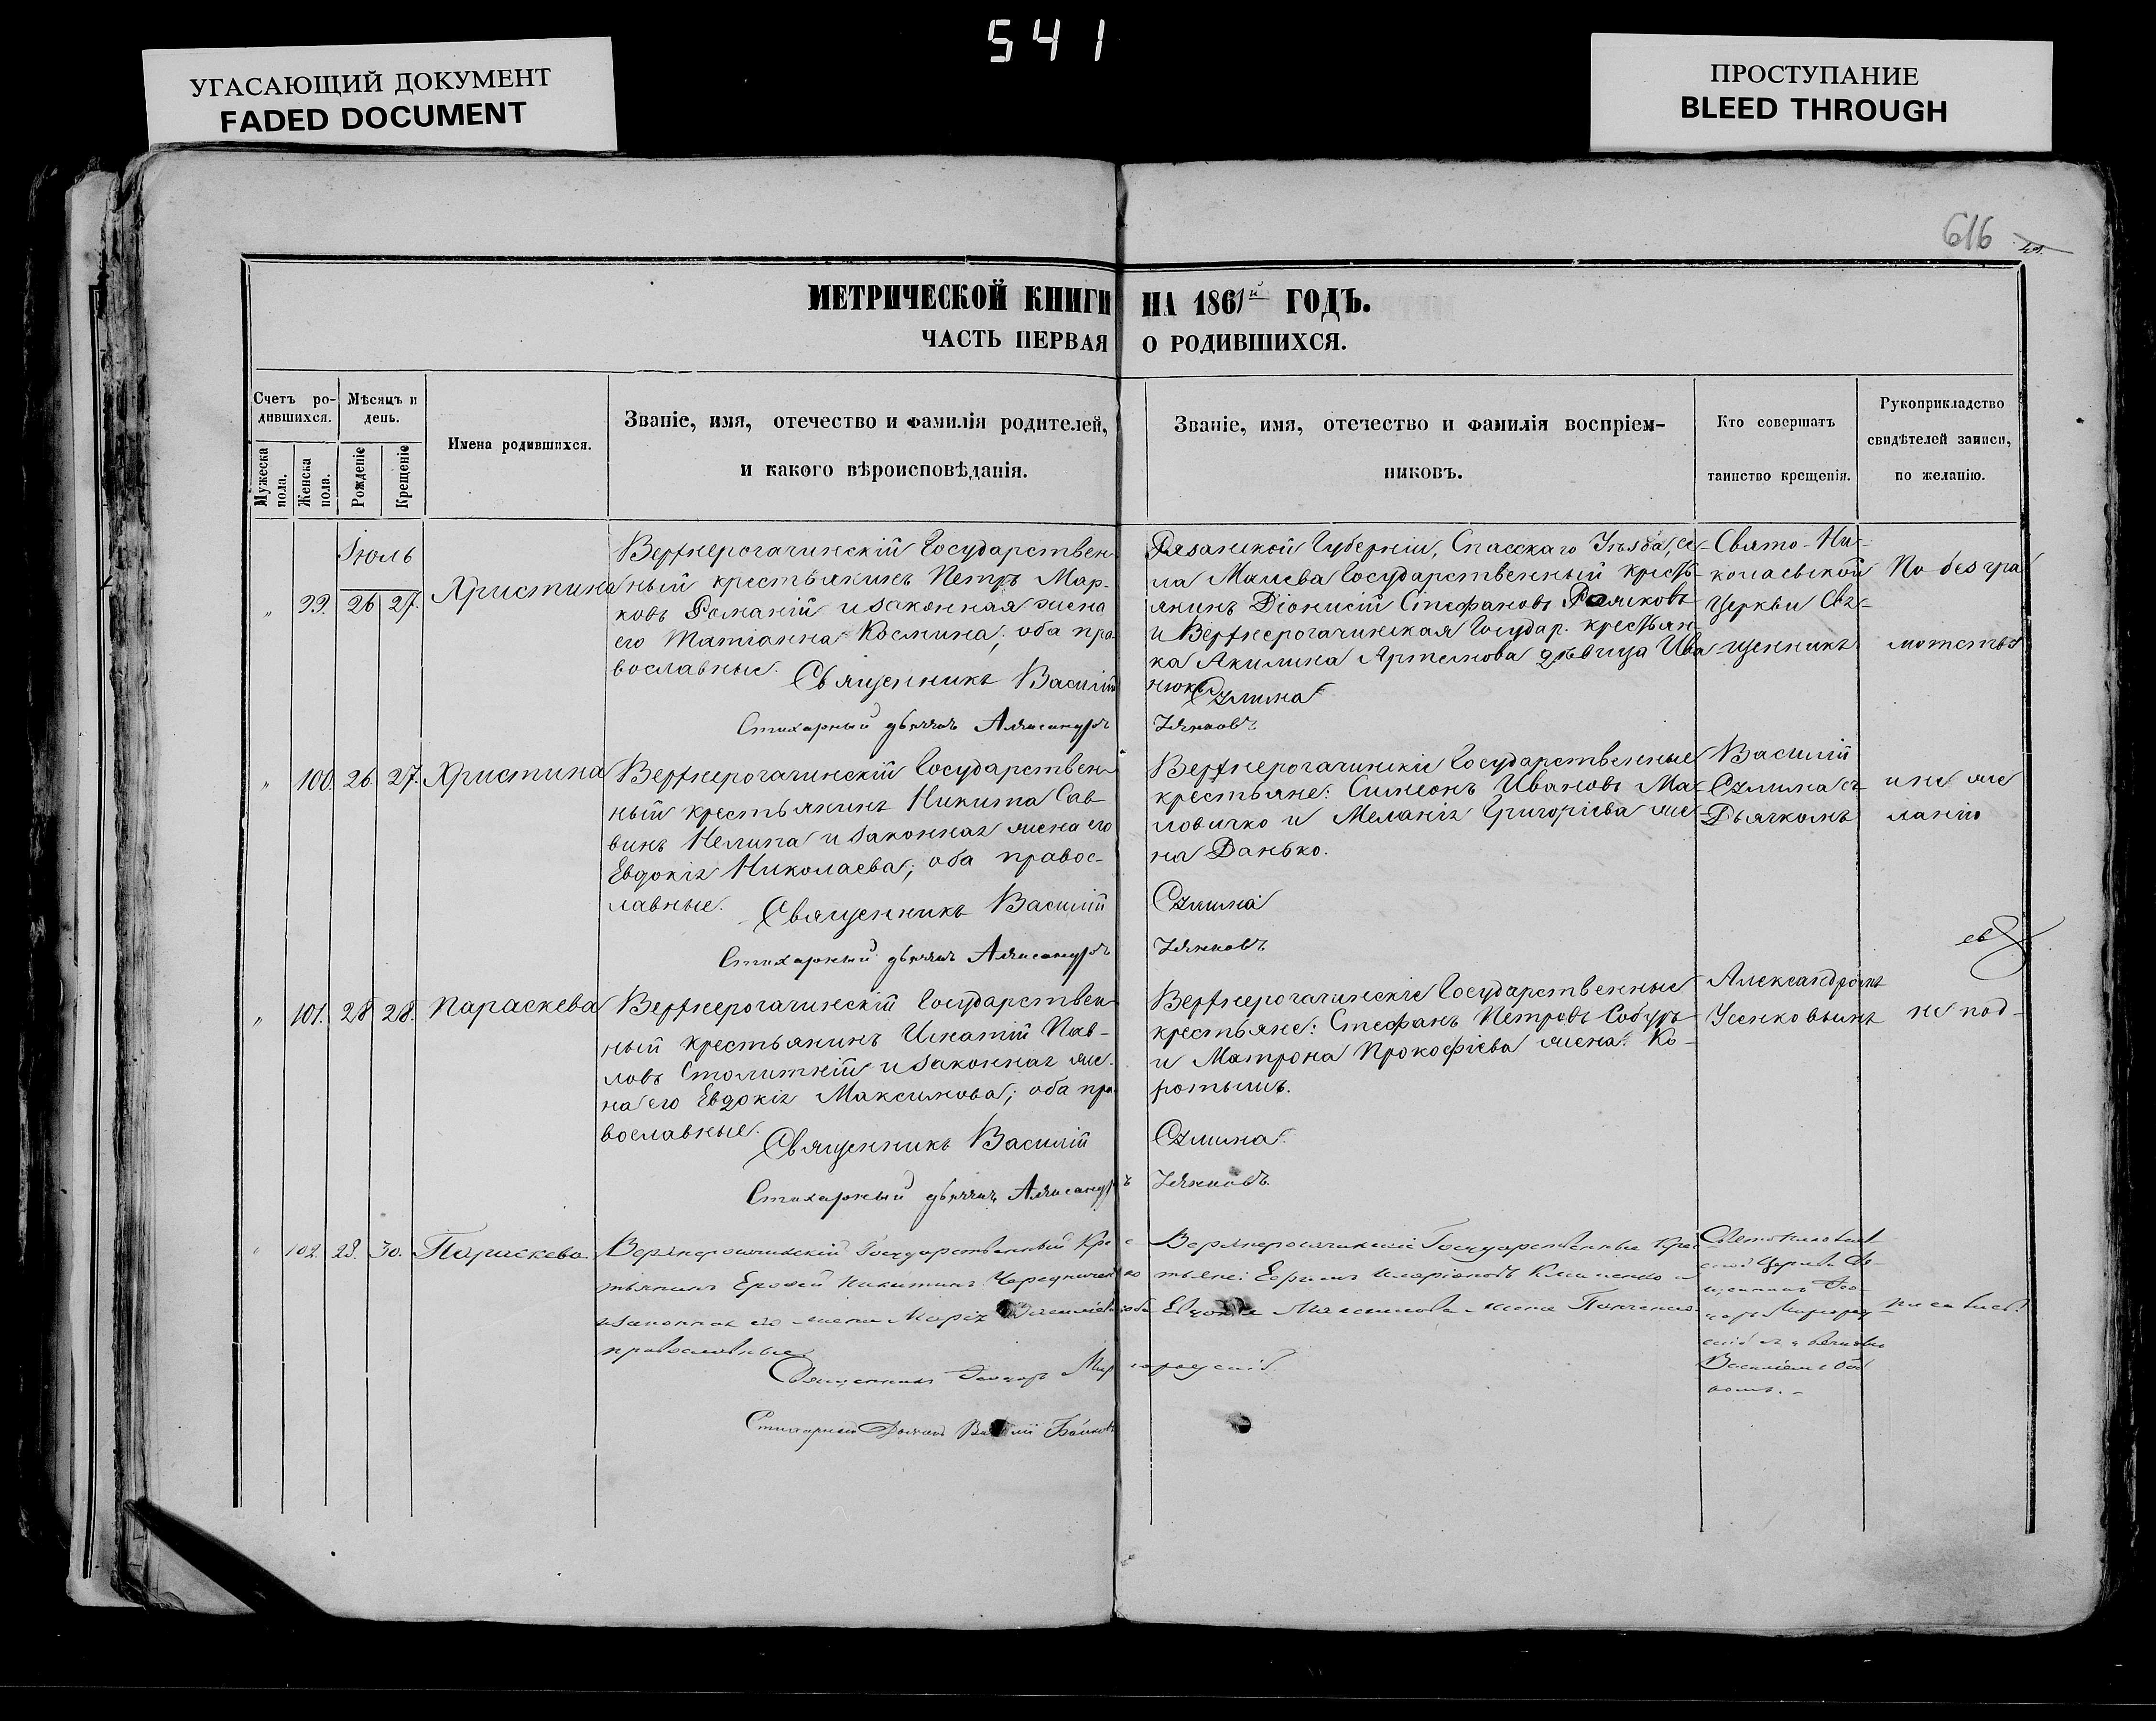 541
УГАСАЮЩИЙ ДОКУМЕНТ
FADED DOCUMENT
ПРОСТУПАНИЕ
BLEED THROUGH
616
МЕТРИЧЕСКОЙ КНИГИ НА 1861й ГОДЪ.
ЧАСТЬ ПЕРВАЯ О РОДИВШИХСЯ.
Счетъ ро-
дившихся.
Мѣсяцъ и
день.
Мужеска
пола.
Женска
пола.
Рожденіе
Крещеніе
Имена родившихся.
Званіе, имя, отечество и фамилія родителей,
и какого вѣроисповѣданія.
Званіе, имя, отечество и фамилія воспріем-
никовъ.
Кто совершатъ
таинство крещенія.
Рукоприкладство
свидѣтелей записи,
по желанію.
Іюль
„ 99. 26 27. Христина
Верхнерогачинскій Государствен-
ный крестьянинъ Петръ Мар-
ковъ Романій и законная жена
его Татіанна Космина; оба пра-
вославные.
Священникъ Василій
Стихарный дьячекъ Александръ
Рязанской Губерніи, Спасскаго Уѣзда, се-
ла Государственный кресть-
янинъ Діонисій Стефановъ
и Верхнерогачинская Государ. крестьян-
ка Акилина Артемова дѣвица Ива-
нюкъ
Сулима
Усенковъ
Свято-Ни-
колаевской
Церкви Свя-
щенникъ
По безгра
мотству
„ 100. 26. 27. Христина
Верхнерогачинскій Государствен-
ный крестьянинъ Никита Сав-
винъ Нелипа и законная жена его
Евдокія Николаева; оба правос-
лавные.
Священникъ Василій
Стихарный дьячекъ Александръ
Верхнерогачинскіе Государственные
крестьяне: Симеонъ Ивановъ Ма-
ловичко и Меланія Григоріева же-
на Данько.
Сулима
Усенковъ
Василій
Сулима съ
Дьячкомъ
и не же
ланію
„ 101. 28 28. Параскева
Верхнерогачинскій Государствен-
ный крестьянинъ Игнатій Пав-
ловъ Столитній и законная же-
на его Евдокія Максимова; оба пра-
вославные.
Священникъ Василій
Стихарный дьячекъ Александръ
Верхнерогачинскіе Государственные
крестьяне: Стефанъ Петровъ Собуръ
и Матрона Прокофіева жена Ко-
ротышъ.
Сулима
Усенковъ
Александромъ
Усенковымъ
не под-
„ 102. 28. 30. Параскева.
Верхнерогачинскій Государственный Крес-
тьянинъ Ерофей Никитинъ Чередниченко
и законная его жена Марія Василіева оба
православные.
Священникъ Миргородскій
Стихарный Дьячекъ Василій
Верхнерогачинскіе Государственные Крес-
тьяне: Ефимъ Иларіоновъ Клименко и
Евдокія Максимова жена Панченко
Церкви Св-
щенникъ
Василіемъ
писались.